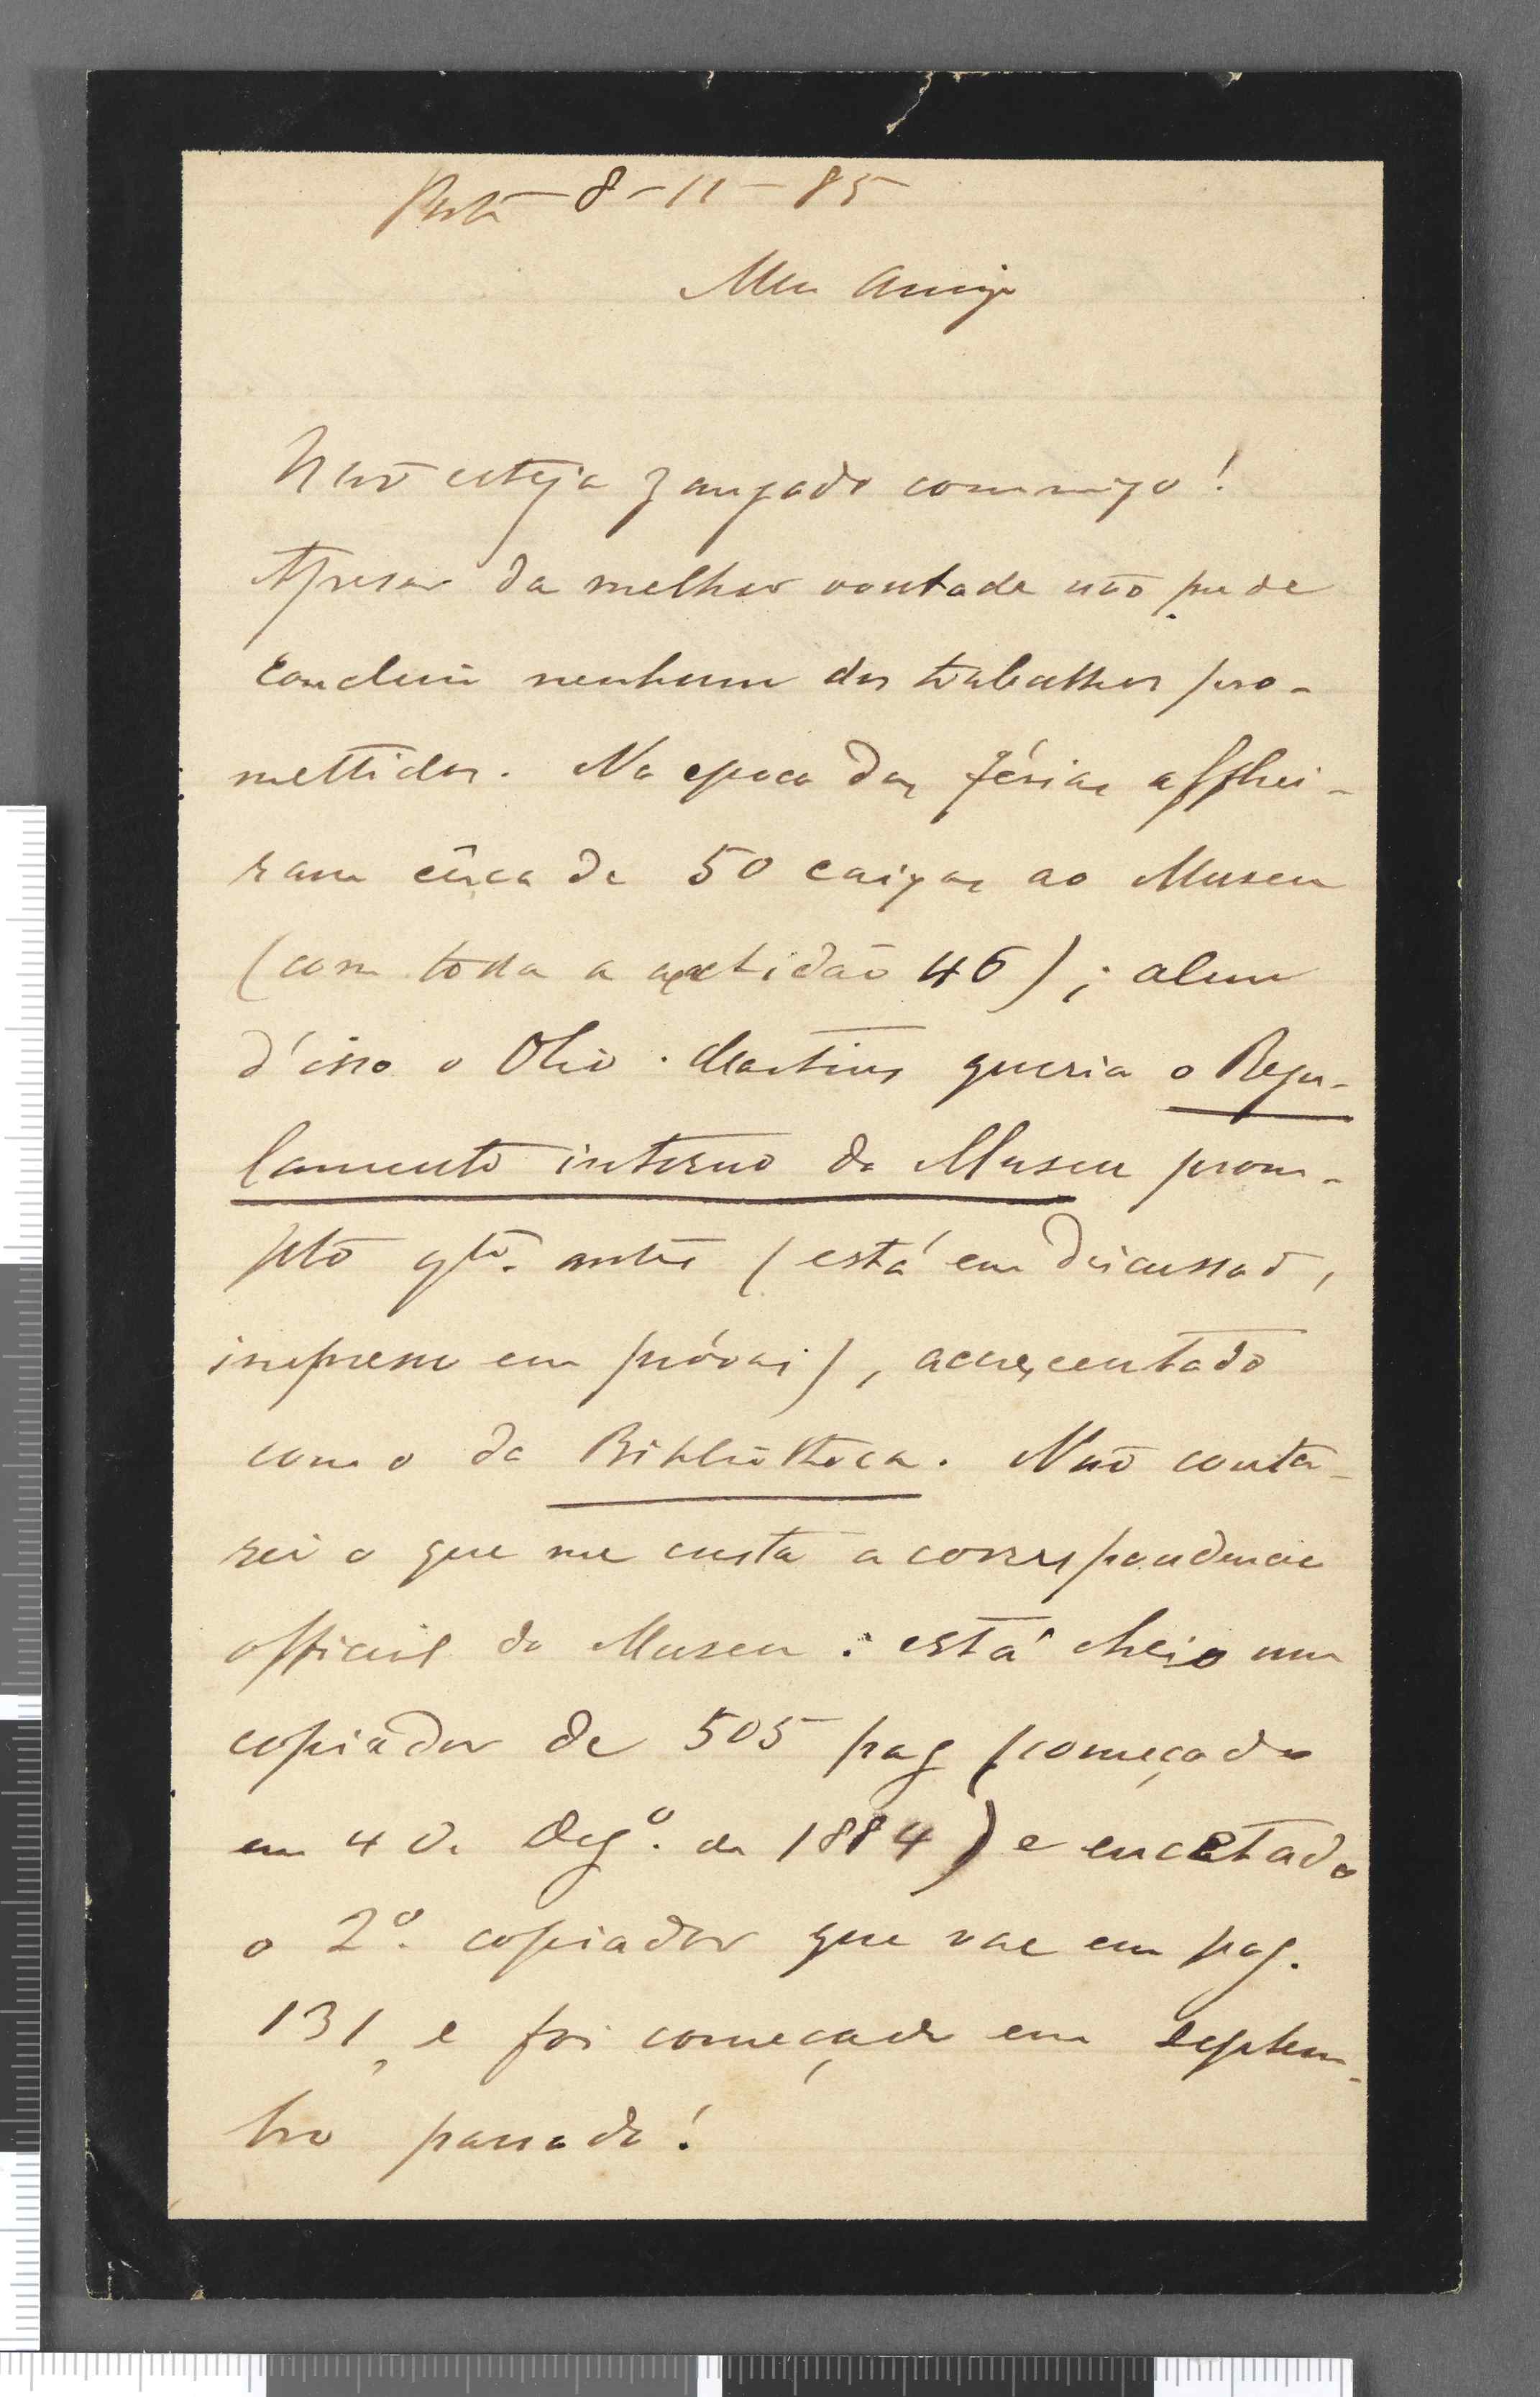 Porto 8-11-85
Meu amigo
Não esteja zangado commigo!
Apesar da melhor vontade não pude
concluir nenhum dos trabalhos pro-
mettidos. Na epoca das férias afflui-
ram cêrca de 50 caixas ao Museu
(com toda a exactidão 46); alem
d'isso o Oliv. Martins queria o Regu-
lamento interno do Museu prom-
pto qto. antes (está em discussão,
impresso em próvas), accrescentado
com o da Bibliotheca. Não conta-
rei o que me custa a correspondencia
official do Museu: está cheio um
copiador de 505 pag (começado
em 4 de Dez.º de 1884) e encetado
o 2.º copiador que vae em pag.
131, e foi começado em septem-
bro passado!